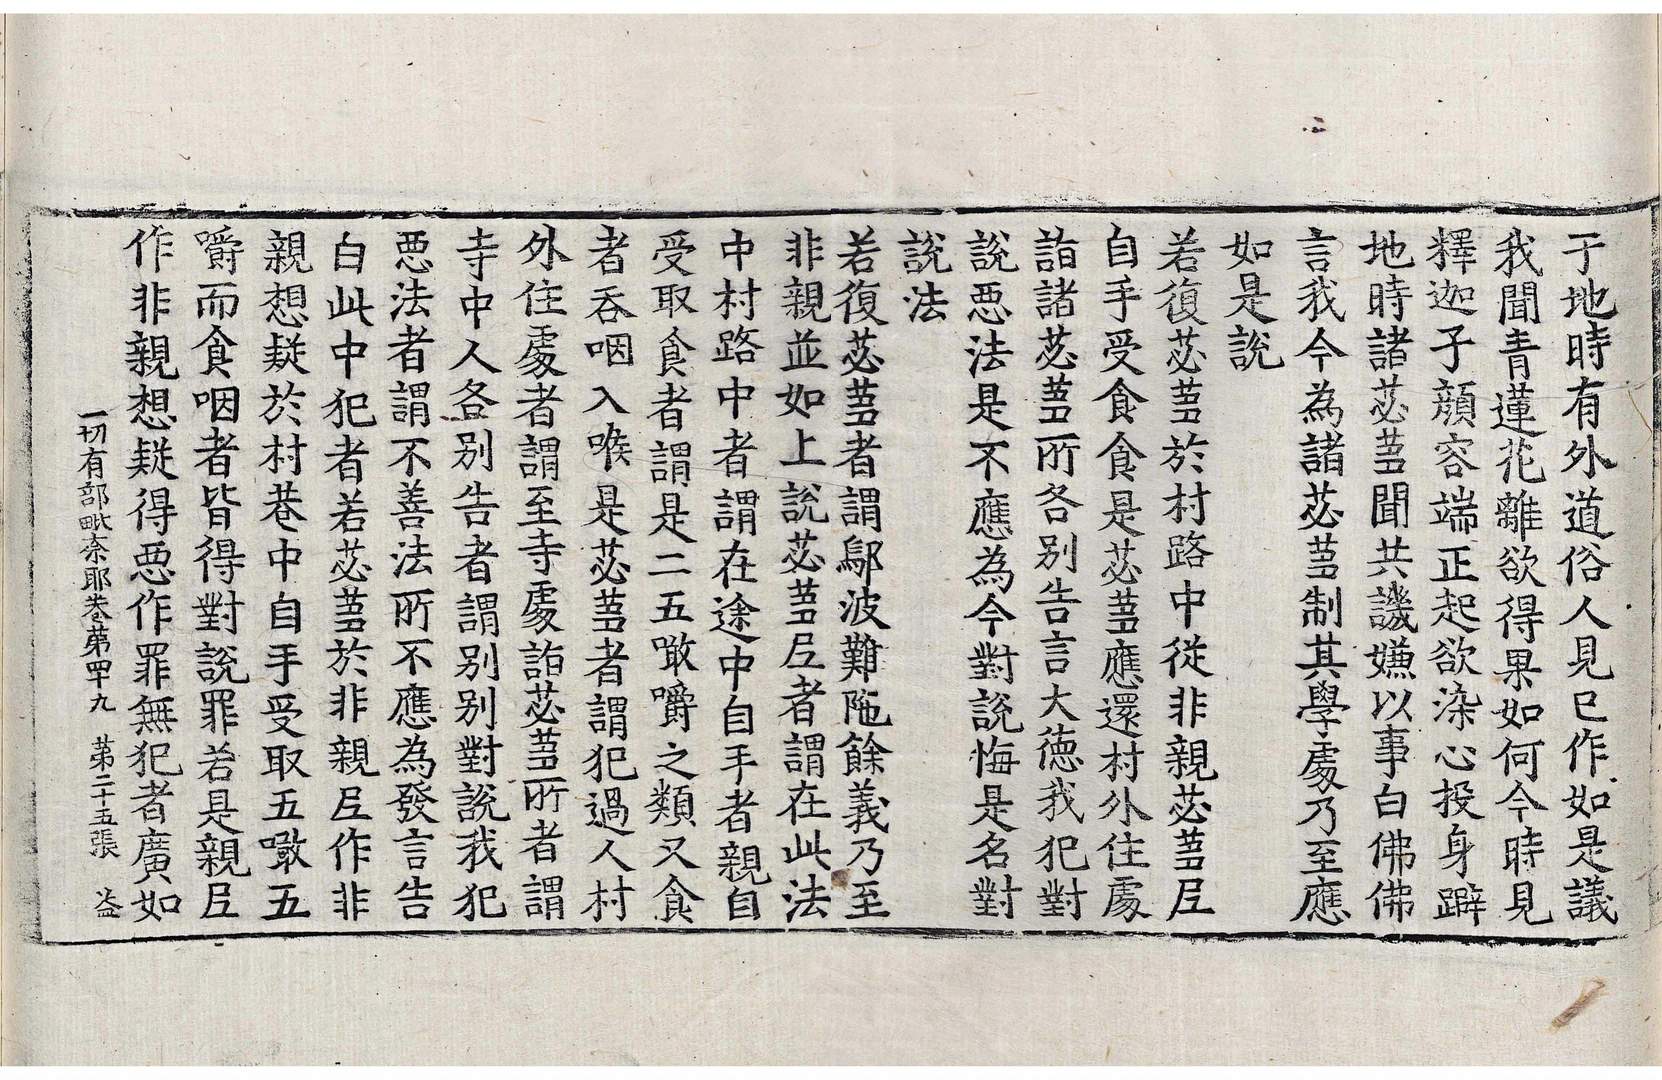 于地時有外道俗人見已作如是議
我聞青蓮花離欲得果如何今時見
釋迦子顔容端正起欲染心投身躃
地時諸苾蒭聞共譏嫌以事白佛佛
言我今為諸苾蒭制其學處乃至應
如是說
若復苾蒭於村路中從非親苾蒭尼
自手受食食是苾蒭應還村外住處
詣諸苾蒭所各別告言大德我犯對
說惡法是不應為今對說悔是名對
說法
若復苾蒭者謂鄔波難陁餘義乃至
非親並如上說苾蒭尼者謂在此法
中村路中者謂在途中自手者親自
受取食者謂是二五噉嚼之類又食
者吞咽入喉是苾蒭者謂犯過人村
外住處者謂至寺處詣苾蒭所者謂
寺中人各別告者謂別別對說我犯
惡法者謂不善法所不應為發言告
白此中犯者若苾蒭於非親尼作非
親想疑於村巷中自手受取五噉五
嚼而食咽者皆得對說罪若是親尼
作非親想疑得惡作罪無犯者廣如
一切有部毗奈耶卷第四十九 第二十五張 益